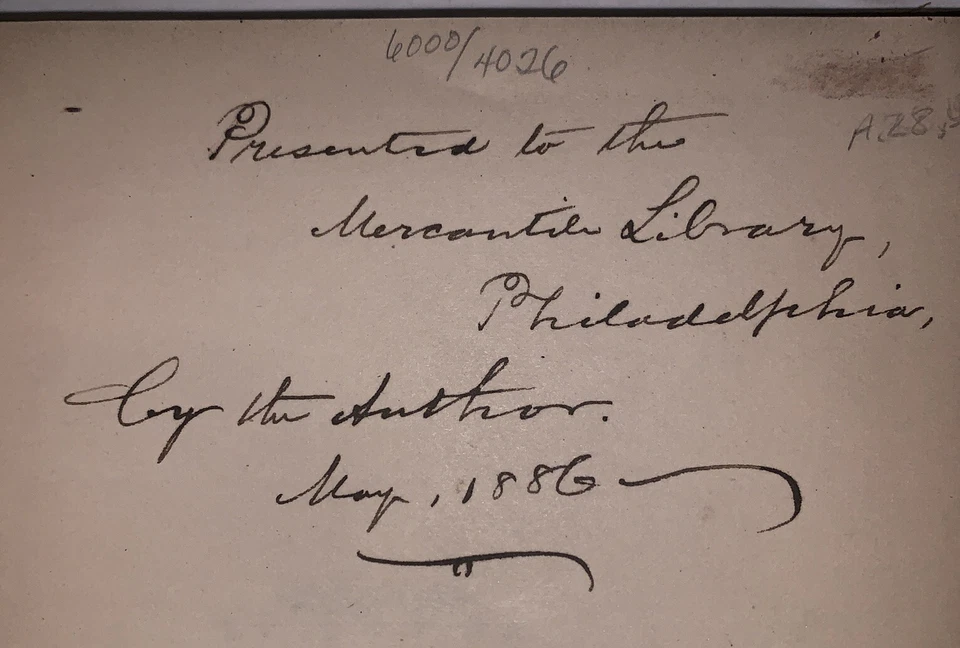 6000/4026
A.Z8.
Presented to the
Mercantile Library,
Philadelphia,
by the Author.
May, 1886